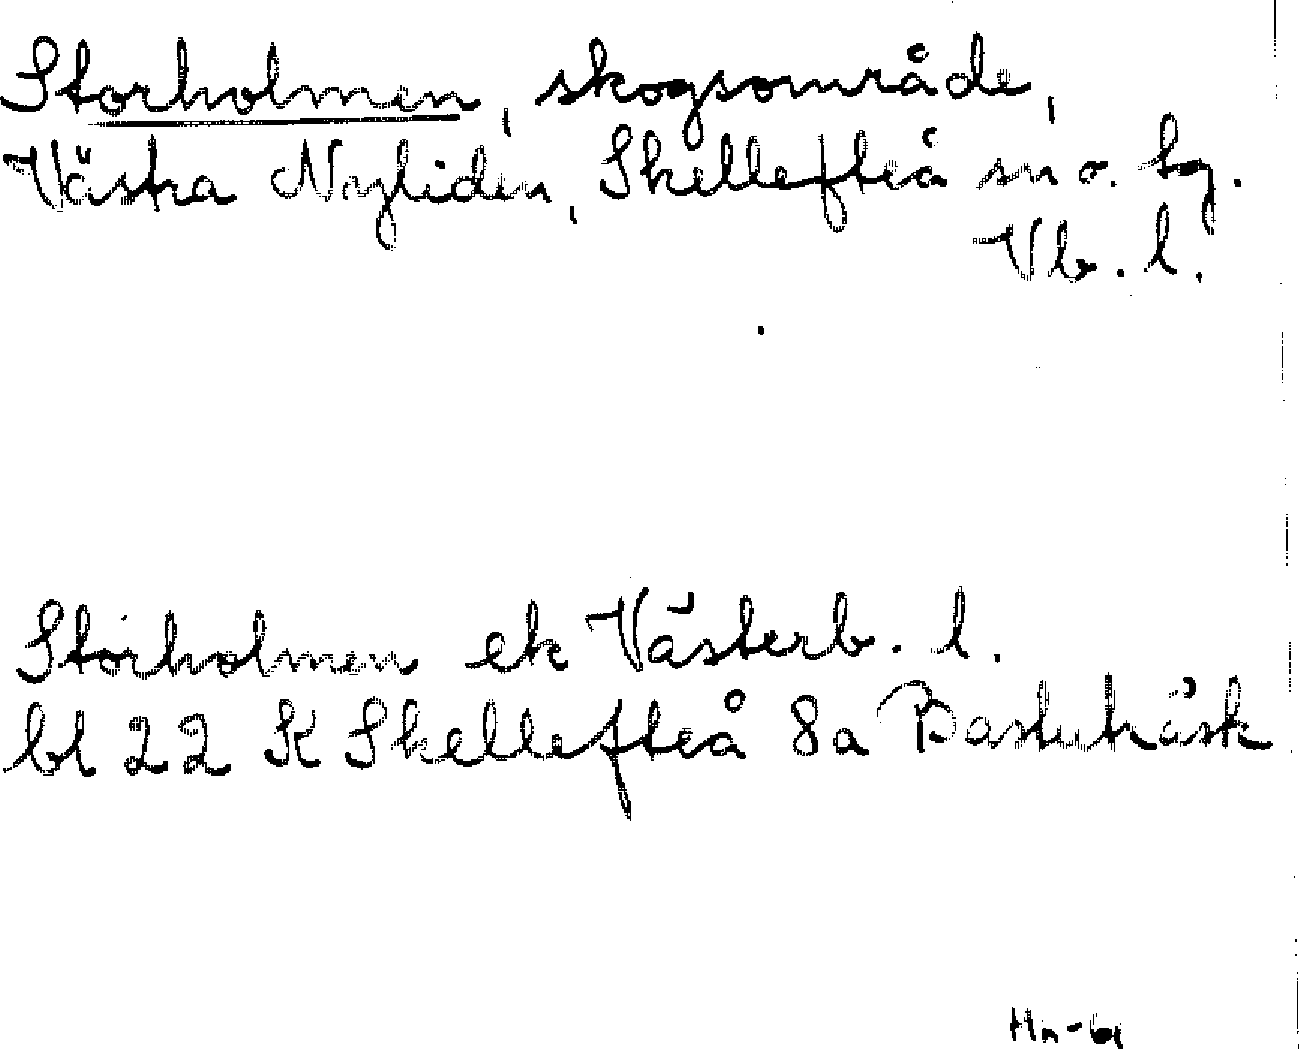 Storholmen, skogsområde,
Västra Nyliden, Skellefteå sn o. hg.
Vb. l.
Storholmen ek Västerb. l.
bl 22 K Skellefteå 8a Bastuträsk
Hn-61